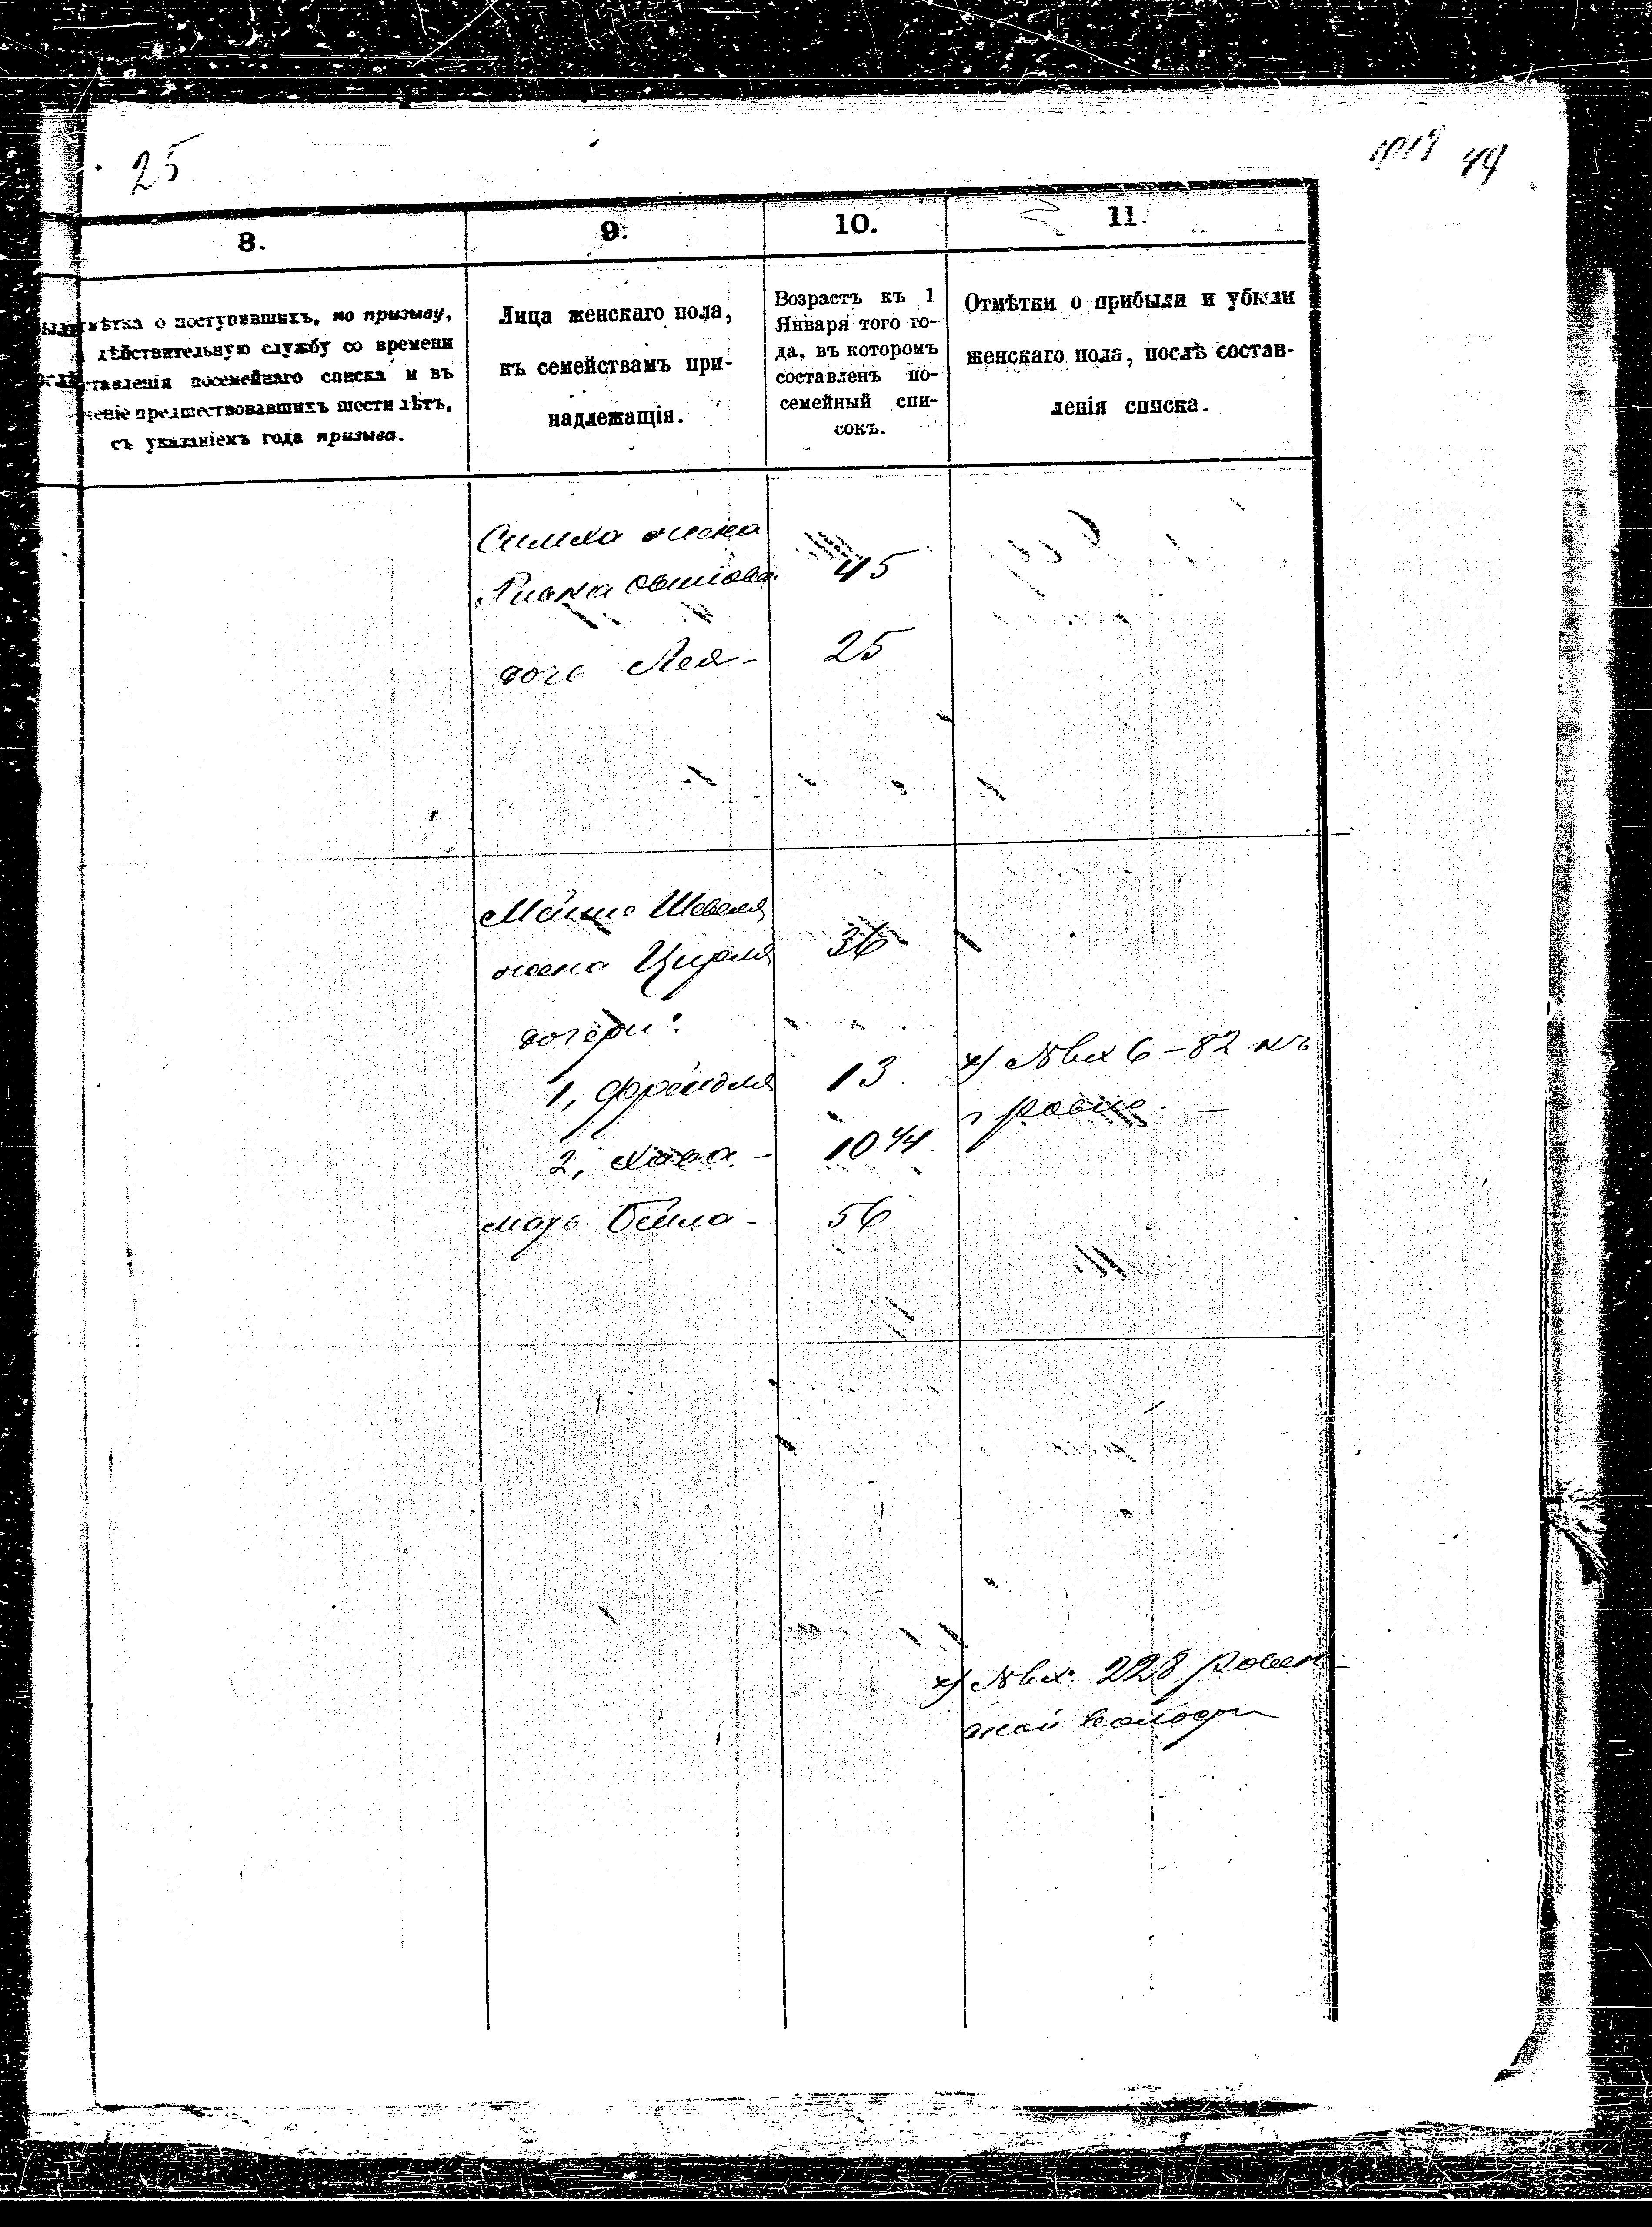 25
49
8.
9.
10.
11.
мѣтка о поступившихъ, по призыву,
дѣйствительную службу со времени
ставленія посемейнаго списка и въ
ченіе предшествовавшихъ шести лѣтъ,
съ указаніемъ года призыва.
Лица женскаго пола,
къ семействамъ при-
надлежащія.
Возрастъ къ 1
Января того го-
да, въ которомъ
составленъ по-
семейный спи-
сокъ.
Отмѣтки о прибыли и убыли
женскаго пола, послѣ состав-
ленія списка.
Симха жена
45
дочь Лея - 25
Шевеля
жена Цирля 36
дочери:
1, Фрейдля 13.
2, Хава - 10
мать Бейла - 56
х) № вх 6 - 82 къ
г Ровне. -
х) № вх. 228 Ровен-
ской